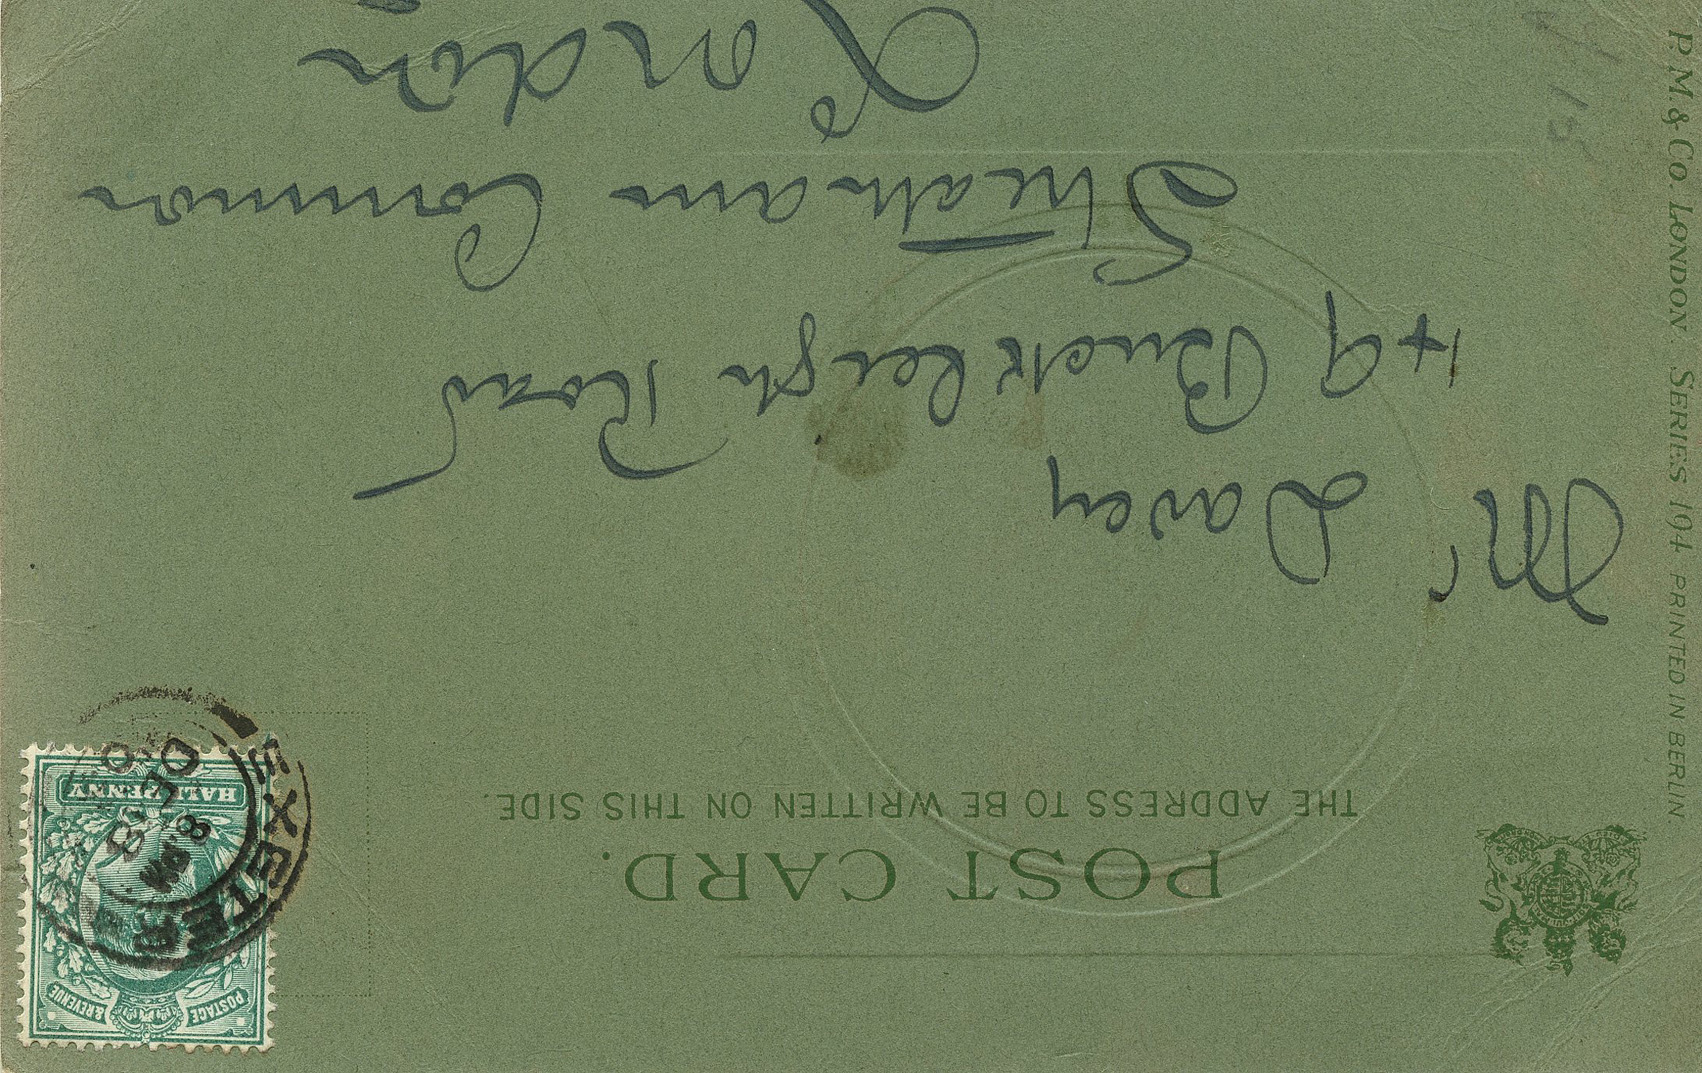 POST CARD.
THE ADDRESS TO BE WRITTEN ON THIS SIDE.
POSTAGE & REVENUE
HALFPENNY
EXETER
8. PM
DE
Mr Davey
49 Buckleigh Road
Streatham Common
London
P. M & Co. LONDON. SERIES 194 PRINTED IN BERLIN.